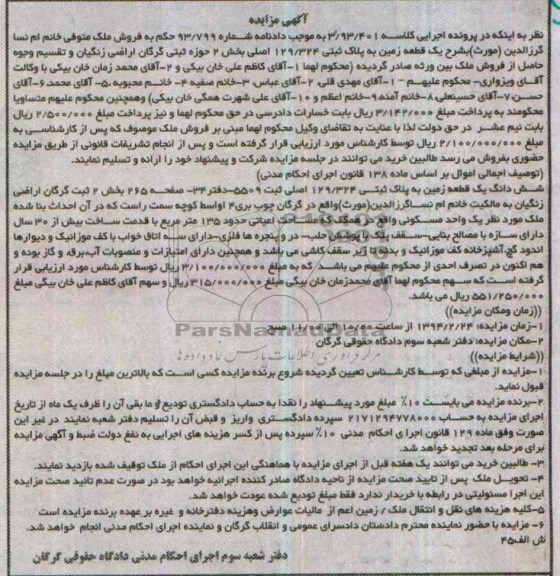 آگهی مزایده
نظر به اینکه در پرونده اجرایی کلاسه ۳/۹۳/۴۰۱ به موجب دادنامه شماره ۹۳/۷۹۹ حکم به فروش ملک متوفی خانم ام نسا
گرزالدین (مورث)بشرح یک قطعه زمین به پلاک ثبتی ۱۲۹/۳۲۴ اصلی بخش ۲ حوزه ثبتی گرگان اراضی زنگیان و تقسیم وجوه
حاصل از فروش ملک بین ورثه صادر گردیده (محکوم لهما ۱-آقای کاظم علی خان بیکی و ۲-آقای محمد زمان خان بیکی با وکالت
آقای ویزواری- محکوم علیهم - ۱-آقای مهدی قلی. ۲-آقای عباس. ۳-خانم صفیه ۴- خانم محبوبه ۵- آقای محمد. ۶-آقای
حسن. ۷-آقای حسینعلی. ۸-خانم آمنه. ۹-خانم اعظم و ۱۰-آقای علی شهرت همگی خان بیکی) وهمچنین محکوم علیهم متساویا
محکومند به پرداخت مبلغ ۳/۱۴۲/۰۰۰ ریال بابت خسارات دادرسی در حق محکوم لهما و نیز پرداخت مبلغ ۲/۵۰۰/۰۰۰ ریال
بابت نیم عشر در حق دولت لذا با عنایت به تقاضای وکیل محکوم لهما مبنی بر فروش ملک موصوف که پس از کارشناسی به
مبلغ ۲/۱۰۰/۰۰۰/۰۰۰ ریال توسط کارشناس مورد ارزیابی قرار گرفته است و پس از انجام تشریفات قانونی از طریق مزایده
حضوری بفروش می رسد طالبین خرید می توانند در جلسه مزایده شرکت و پیشنهاد خود را ارائه و تسلیم نمایند.
(توصیف اجمالی اموال بر اساس ماده ۱۳۸ قانون اجرای احکام مدنی)
شش دانگ یک قطعه زمین به پلاک ثبتی ۱۲۹/۳۲۴ اصلی ثبت ۵۵۰۹-دفتر۳۴- صفحه ۲۶۵ بخش ۲ ثبت گرگان اراضی
زنگیان به مالکیت خانم ام نساگرزالدین(مورث)واقع در گرگان چوب بری۴ اواسط کوچه سمت راست که در آن احداث بنا شده
ملک مورد نظر یک واحد مسکونی واقع در همکف که مساحت اعیانی حدود ۱۳۵ متر مربع با قدمت ساخت بیش از ۳۰ سال
دارای سازه با مصالح بنایی-سقف پلاک با پوشش حلب- در و پنجره ها فلزی-دارای سه اتاق خواب با کف موزائیک و دیوارها
اندود گچ.آشپزخانه کف موزائیک و بدنه تا زیر سقف کاشی می باشد و همچنین دارای امتیازات و منصوبات آب.برق و گاز بوده و
هم اکنون در تصرف احدی از محکوم علیهم می باشد که به مبلغ ۳/۱۰۰/۰۰۰/۰۰۰ ریال توسط کارشناس مورد ارزیابی قرار
گرفته است که سهم محکوم لهما آقای محمدزمان خان بیگی مبلغ ۳۱۵/۰۰۰/۰۰۰ ریال و سهم آقای کاظم علی خان بیگی مبلغ
۵۵۱/۲۵۰/۰۰۰ ریال می باشد.
((زمان ومکان مزایده))
۱-زمان مزایده: ۱۳۹۴/۲/۲۴ از ساعت ۱۰/۰۰ الی ۱۱/۰۰ صبح
۲-مکان مزایده: دفتر شعبه سوم دادگاه حقوقی گرگان
((شرایط مزایده))
۱-مزایده از مبلغی که توسط کارشناس تعیین گردیده شروع برنده مزایده کسی است که بالاترین مبلغ را در جلسه مزایده
قبول نماید.
۲-برنده مزایده می بایست ۱۰٪ مبلغ مورد پیشنهاد را نقدا به حساب دادگستری تودیع و ما بقی آن را ظرف یک ماه از تاریخ
اجرای مزایده به حساب ۲۱۷۱۲۹۴۷۷۸۰۰۰ سپرده دادگستری واریز و قبض آن را تسلیم دفتر شعبه نمایند در غیر این
صورت وفق ماده ۱۲۹ قانون اجرا ی احکام مدنی ۱۰٪ سپرده پس از کسر هزینه های اجرایی به نفع دولت ضبط و آگهی مزایده
برای مرحله بعد تجدید خواهد شد.
۳- طالبین خرید می توانند یک هفته قبل از اجرای مزایده با هماهنگی این اجرای احکام از ملک توقیف شده بازدید نمایند.
۴- تحویل ملک پس از تایید صحت مزایده از ناحیه دادگاه صادر کننده اجرائیه خواهد بود در صورت عدم تائید صحت مزایده
این اجرا مسئولیتی در رابطه با خریدار ندارد فقط مبلغ تودیع شده عودت خواهد شد.
۵-کلیه هزینه های نقل و انتقال ملک / زمین اعم از مالیات عوارض وهزینه دفترخانه و غیره بر عهده برنده مزایده است
۶- مزایده با حضور نماینده محترم دادستان دادسرای عمومی و انقلاب گرگان و نماینده اجرای احکام مدنی انجام خواهد شد.
ش الف۴۵
دفتر شعبه سوم اجرای احکام مدنی دادگاه حقوقی گرگان
ParsNamadData
مرکز فرآوری اطلاعات پارس نماد داده ها